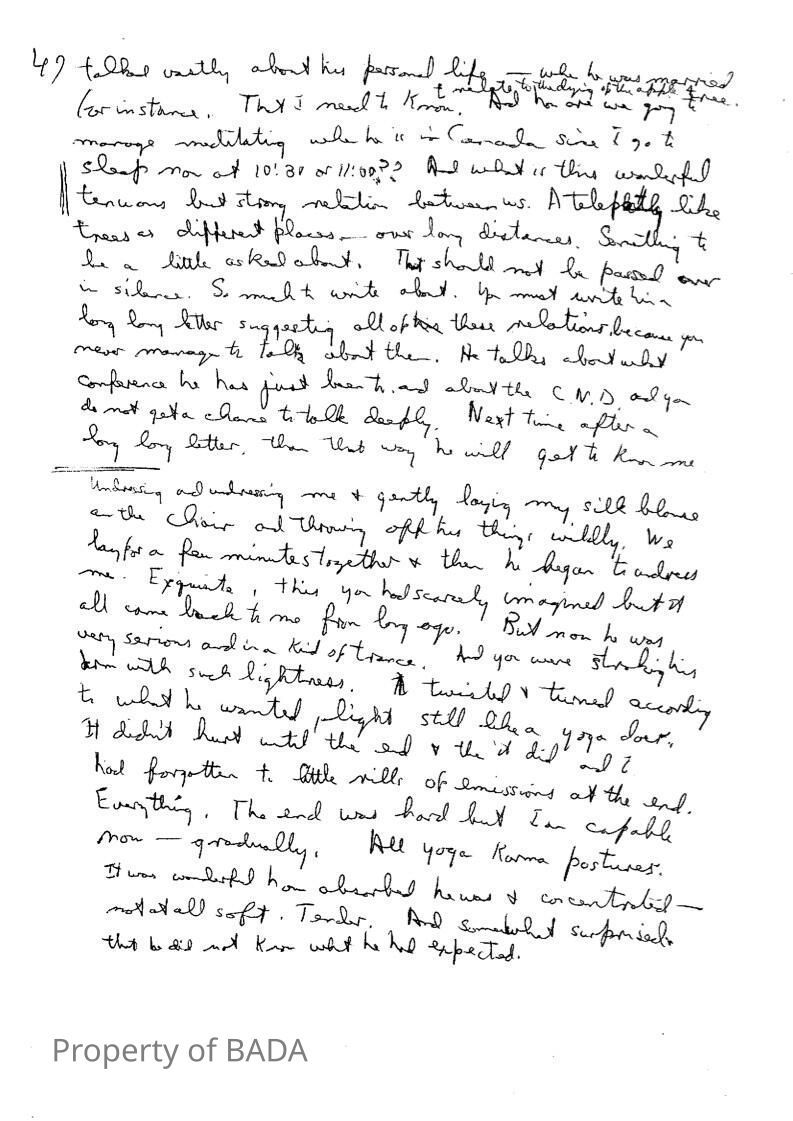 4) talked vastly about his personal life — when he was married
& relate to the dying of the apple tree.
for instance. That I need to know. And how are we going to
manage meditating when he is in Canada since I go to
sleep now at 10:30 or 11:00?? And what is this wonderful
tenuous but strong relation between us. A telepathy like
trees as different places — over long distances. Something to
be a little asked about. That should not be passed over
in silence. So much to write about. You must write him a
long long letter suggesting all of these relations, because you
never manage to talk about them. He talks about what
conference he has just been to and about the C.N.D. and you
do not get a chance to talk deeply. Next time after a
long long letter, then that way he will get to know me
Undressing and undressing me & gently laying my silk blouse
on the chair and throwing off his things wildly. We
lay for a few minutes together & then he began to undress
me. Exquisite, this you had scarcely imagined but it
all came back to me from long ago. But now he was
very serious and in a kind of trance. And you were stroking his
arm with such lightness. twisted & turned according
to what he wanted, light still like a yoga doer.
It didn't hurt until the end & the it did and I
had forgotten the little rills of emissions at the end.
Everything. The end was hard but I am capable
now — gradually. All yoga Karma postures.
It was wonderful how absorbed he was & concentrated —
not at all soft. Tender. And somewhat surprised
that he did not know what he had expected.
Property of BADA